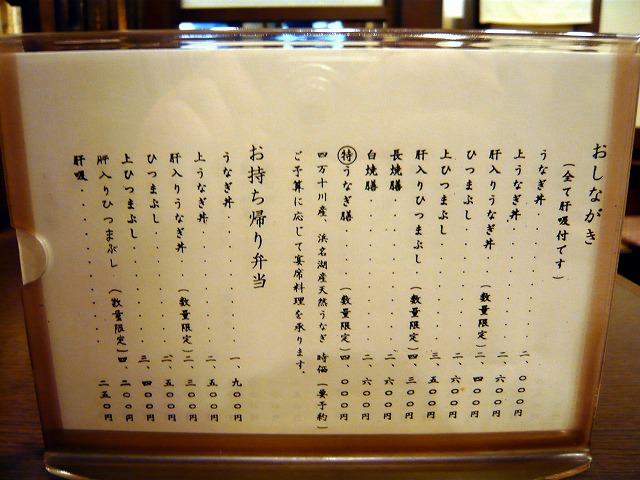 おしながき
(全て肝吸付です)
うなぎ丼・・・・・・・・・二、〇〇〇円
上うなぎ丼・・・・・・・・二、六〇〇円
肝入りうなぎ丼・・(数量限定)二、四〇〇円
ひつまぶし・・・・・・・・二、六〇〇円
上ひつまぶし・・・・・・・三、五〇〇円
肝入りひつまぶし・(数量限定)四、三〇〇円
長焼膳・・・・・・・・・・二、六〇〇円
白焼膳・・・・・・・・・・二、六〇〇円
㊕うなぎ膳・・・・(数量限定)四、〇〇〇円
四万十川産、浜名湖産天然うなぎ 時価(要予約)
ご予算に応じて宴席料理を承ります。
お持ち帰り弁当
うなぎ丼・・・・・・・・・一、九〇〇円
上うなぎ丼・・・・・・・・二、五〇〇円
肝入りうなぎ丼・・(数量限定)二、三〇〇円
ひつまぶし・・・・・・・・二、五〇〇円
上ひつまぶし・・・・・・・三、四〇〇円
肝入りひつまぶし・(数量限定)四、二〇〇円
肝吸・・・・・・・・・・・二五〇円